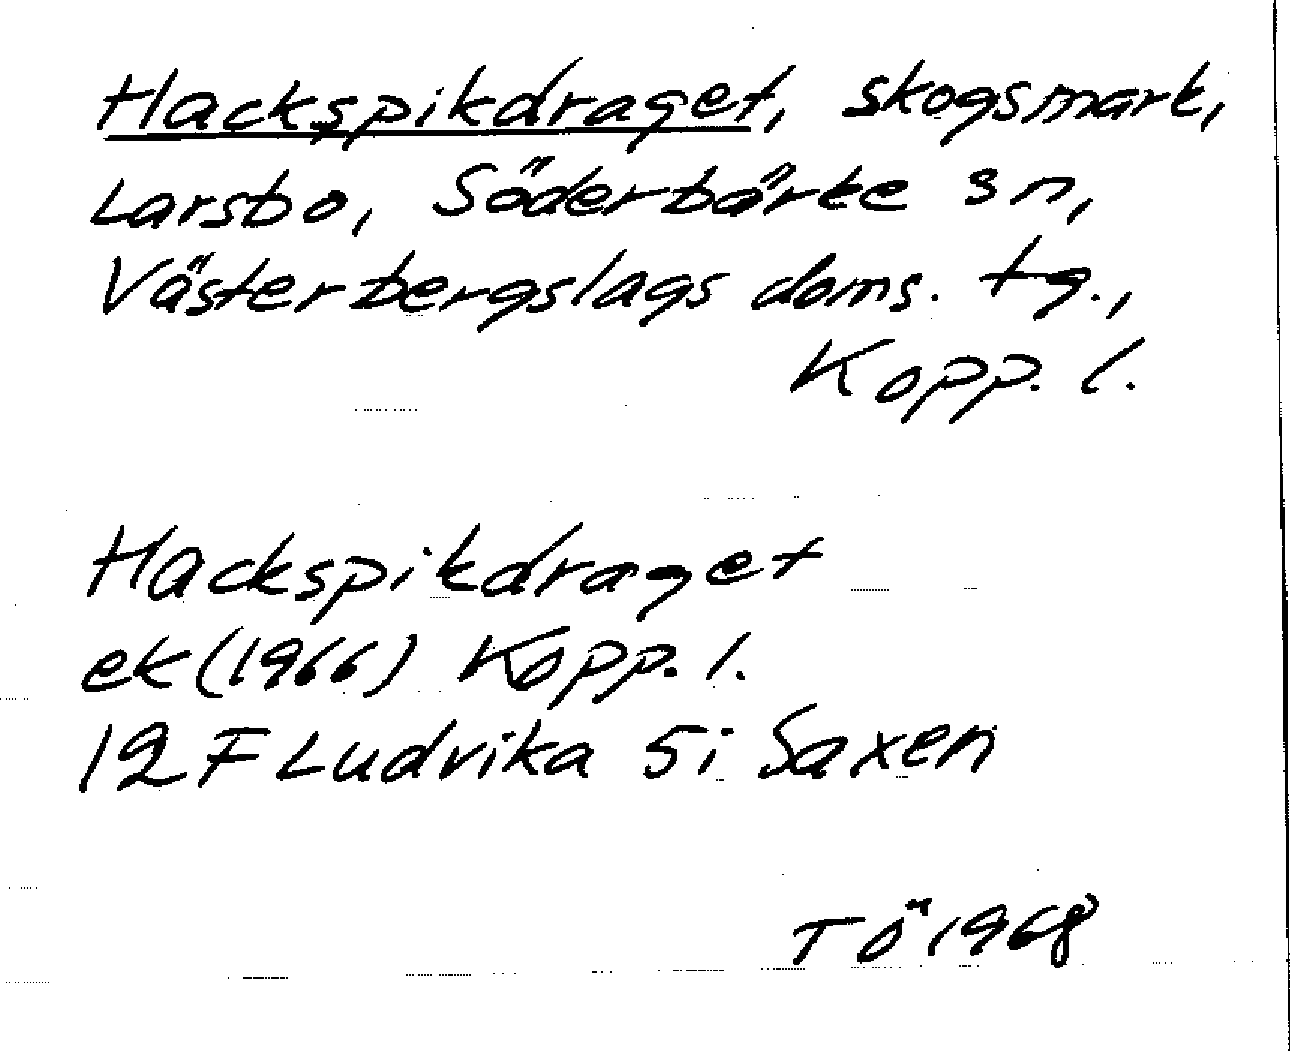 Hackspikdraget, skogsmark,
Larsbo, Söderbärke sn,
Västerbergslags doms. tg.,
Kopp. l.
Hackspikdraget
ek (1966) Kopp. l.
12 F Ludvika 5i Saxen
TÖ 1968